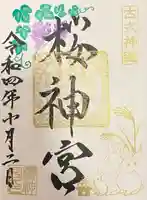 古式神道
桜神宮
令和四年十月二日